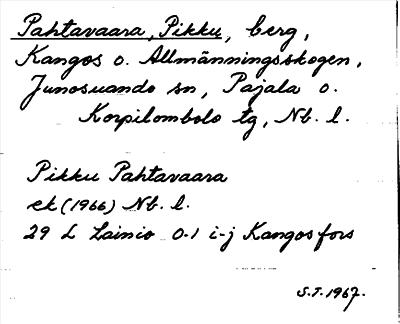 Pahtavaara, Pikku, berg,
Kangos o. Allmänningsskogen,
Junosuando sn, Pajala o.
Korpilombolo tg, Nb. l.
Pikku Pahtavaara
ek (1966) Nb. l.
29 L Lainio 0-1 i-j Kangosfors
S.T. 1967.